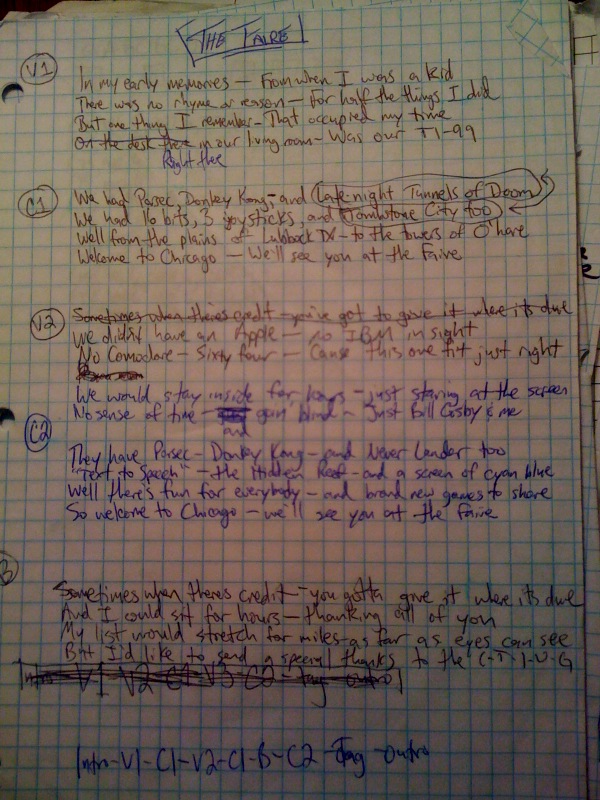 THE FAIRE
V1
In my early memories - From when I was a kid
There was no rhyme or reason - For half the things I did
But one thing I remember - That occupied my time
On the desk there in our living room - Was our TI-99
Right there
C1
We had Parsec, Donkey Kong, - and Late-night Tunnels of Doom
We had 16 bits, 3 joysticks, and Tombstone City too
Well from the plains of Lubbock TX - to the towers of O'hare
Welcome to Chicago - We'll see you at the Faire
V2
Sometimes when theres credit - you've got to give it where its due
We didn't have an Apple - no IBM in sight
No Comodore - Sixty four - Cause this one fit just right
We would stay inside for hours - just staring at the screen
No sense of time - goin blind - Just Bill Cosby & me
and
C2
They have Parsec - Donkey Kong - and Never Lander too
"Text to Speech" - the Hidden Reef - and a screen of cyan blue
Well there's fun for everybody - and brand new games to share
So welcome to Chicago - we'll see you at the Faire
B
Sometimes when theres credit - you gotta give it where its due
And I could sit for hours - thanking all of you
My list would stretch for miles - as far as eyes can see
But I'd like to send a special thanks to the C-T-I-U-G
Intro V1 V2 C1 V3 C2 - Tag Outro
Intro-V1-C1-V2-C1-B-C2-Tag-Outro